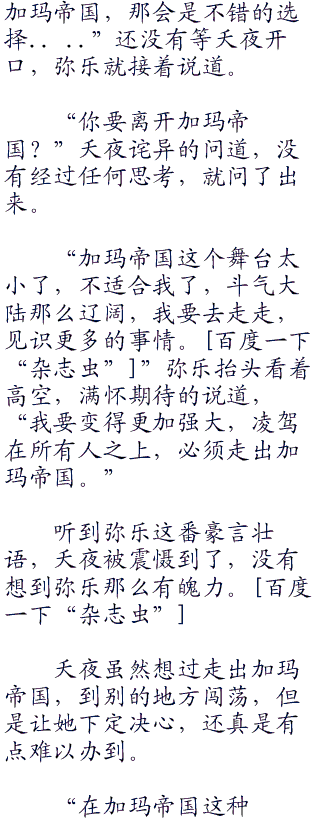 加玛帝国，那会是不错的选
择．．．．”还没有等夭夜开
口，弥乐就接着说道。
“你要离开加玛帝
国？”夭夜诧异的问道，没
有经过任何思考，就问了出
来。
“加玛帝国这个舞台太
小了，不适合我了，斗气大
陆那么辽阔，我要去走走，
见识更多的事情。[百度一下
“杂志虫”]”弥乐抬头看着
高空，满怀期待的说道，
“我要变得更加强大，凌驾
在所有人之上，必须走出加
玛帝国。”
听到弥乐这番豪言壮
语，夭夜被震慑到了，没有
想到弥乐那么有魄力。[百度
一下“杂志虫”]
夭夜虽然想过走出加玛
帝国，到别的地方闯荡，但
是让她下定决心，还真是有
点难以办到。
“在加玛帝国这种